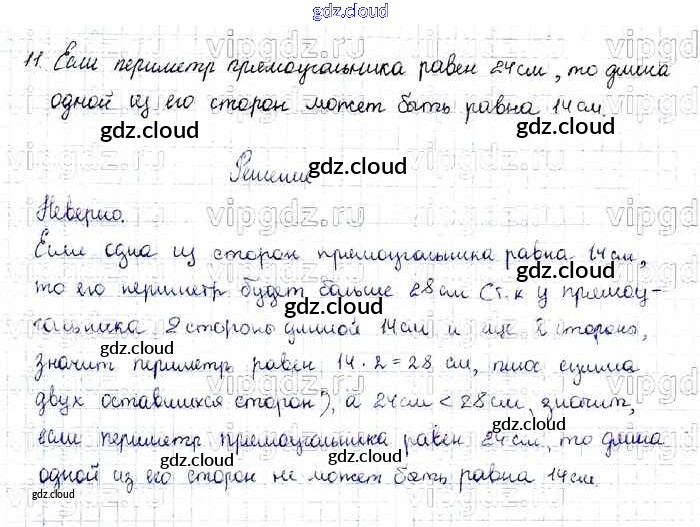 gdz.cloud
11. Если периметр прямоугольника равен 24 см, то длина
одной из его сторон может быть равна 14 см.
gdz.cloud gdz.cloud
Решение gdz.cloud
Неверно.
Если одна из сторон прямоугольника равна 14 см,
gdz.cloud
то его периметр будет больше 28 см (т.к у прямоу-
gdz.cloud
гольника 2 стороны длиной 14 см и еще 2 стороны,
gdz.cloud
значит периметр равен 14 · 2 = 28 см, плюс сумма
gdz.cloud
двух оставшихся сторон), а 24 см < 28 см, значит,
gdz.cloud
если периметр прямоугольника равен 24 см, то длина
gdz.cloud
одной из его сторон не может быть равна 14 см.
gdz.cloud
vipgdz.ru